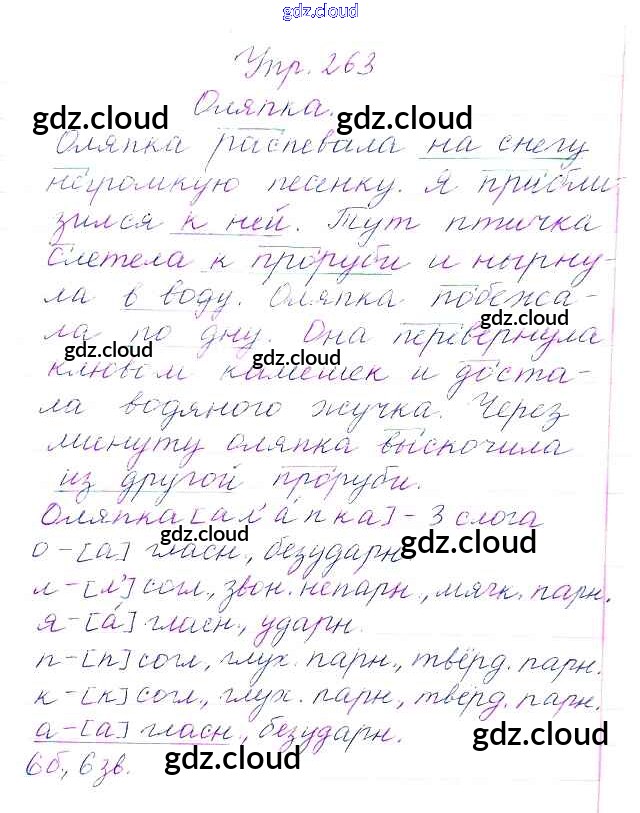 gdz.cloud
Упр. 263
gdz.cloud
Оляпка.
gdz.cloud
Оляпка распевала на снегу
негромкую песенку. Я прибли-
зился к ней. Тут птичка
слетела к проруби и нырну-
ла в воду. Оляпка побежа-
gdz.cloud
ла по дну. Она перевернула
gdz.cloud
gdz.cloud
клювом камешек и доста-
ла водяного жучка. Через
минуту оляпка выскочила
из другой проруби.
Оляпка [ал'áпка] - 3 слога
о - [а] гласн., безударн.
gdz.cloud
л - [л'] согл., звон. непарн., мягк. парн.
я - [á] гласн., ударн.
п - [п] согл., глух. парн., твёрд. парн.
к - [к] согл., глух. парн., твёрд. парн.
а - [а] гласн., безударн.
gdz.cloud
6б., 6 зв.
gdz.cloud